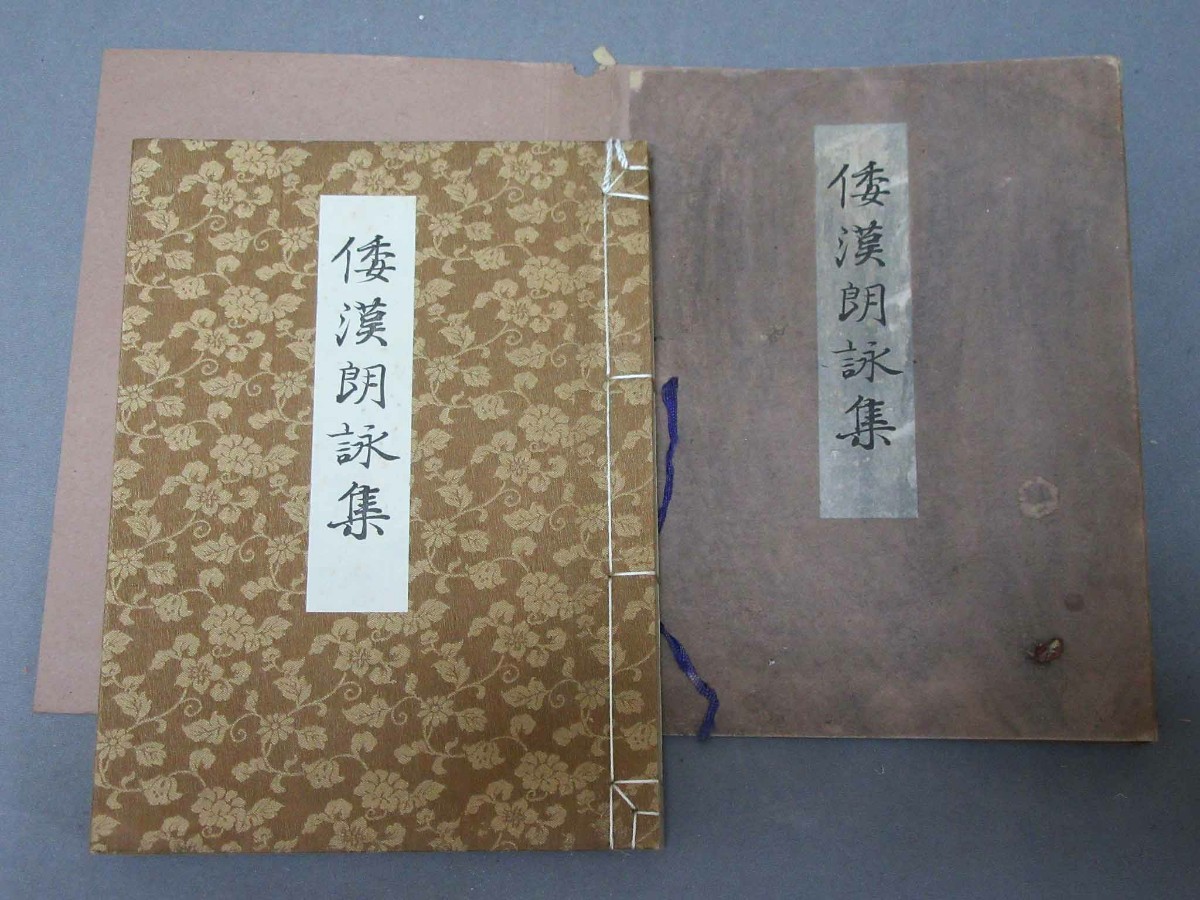 倭漢朗詠集
倭漢朗詠集